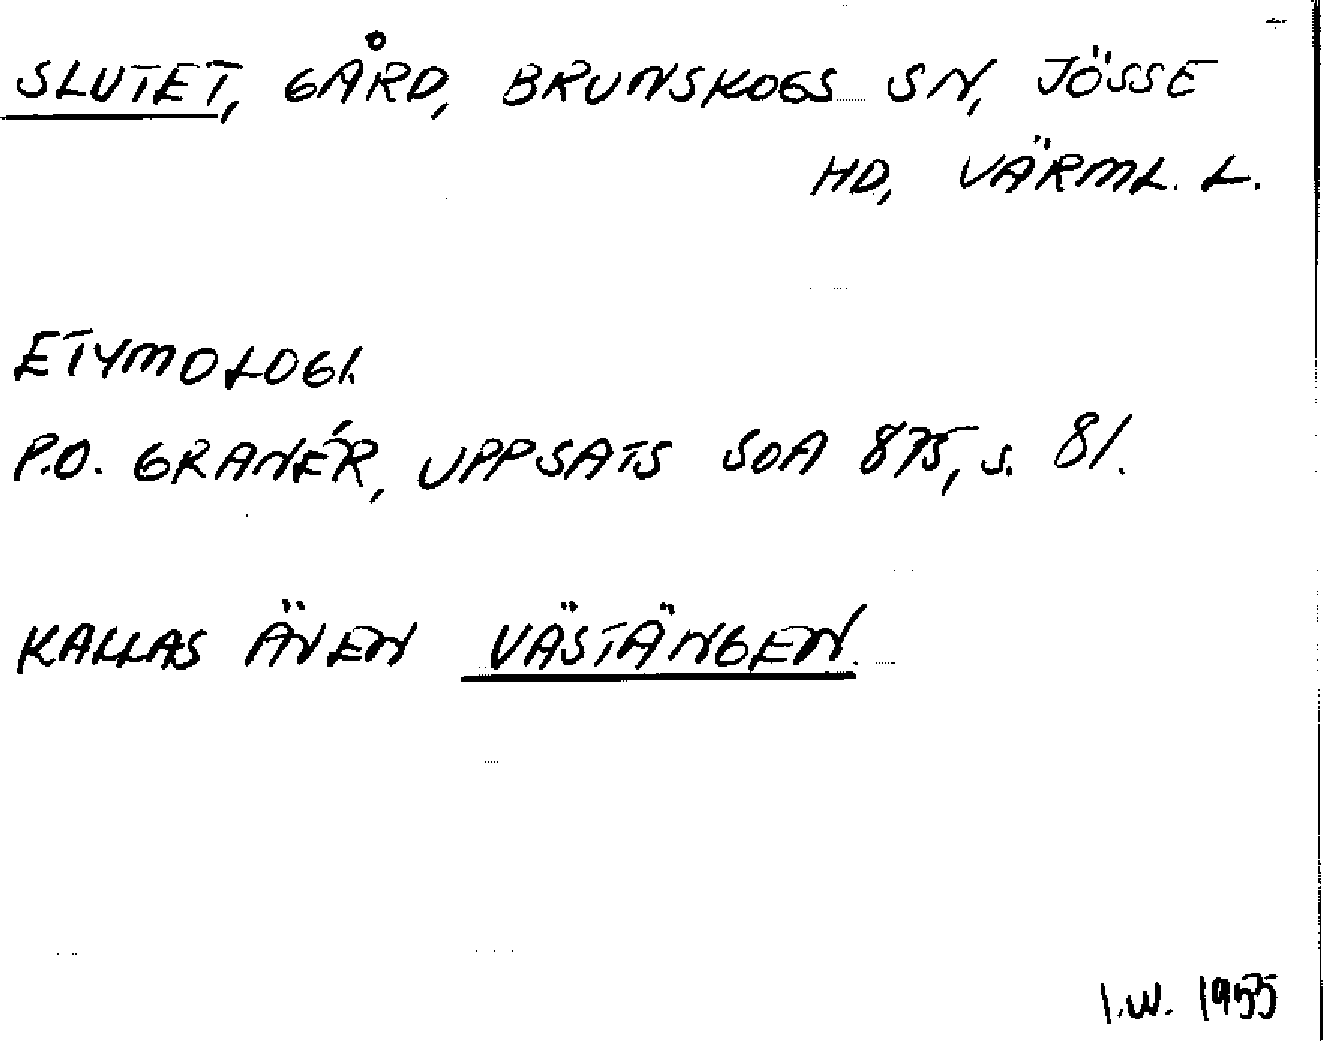 SLUTET, GÅRD, BRUNSKOGS SN, JÖSSE
HD, VÄRML. L.
ETYMOLOGI.
P.O. GRANÉR, UPPSATS SOA 875, s. 81.
KALLAS ÄVEN VÄSTÄNGEN.
I.W. 1955